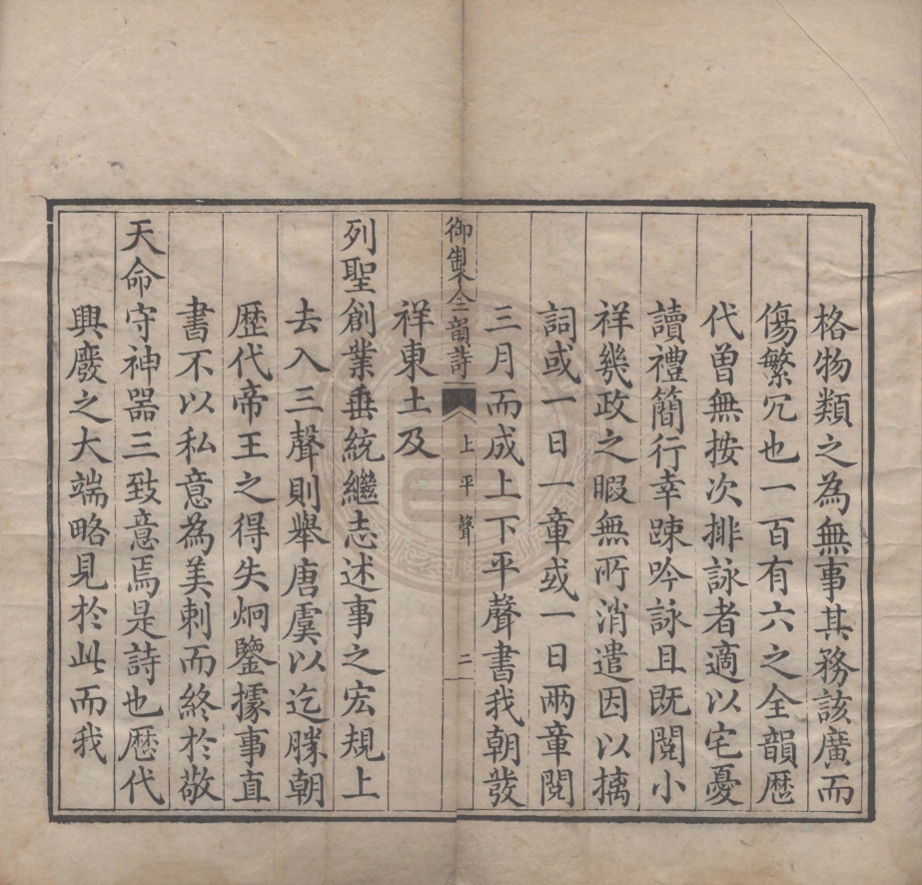 格物類之為無事其務該廣而
傷繁冗也一百有六之全韻歷
代曾無按次排詠者適以宅憂
讀禮簡行幸踈吟詠且既閱小
祥幾政之暇無所消遣因以摛
詞或一日一章或一日兩章閱
三月而成上下平聲書我朝發
御製全韻詩 上平聲 二
祥東土及
列聖創業垂統繼志述事之宏規上
去入三聲則舉唐虞以迄勝朝
歷代帝王之得失炯鑒據事直
書不以私意為美刺而終於敬
天命守神器三致意焉是詩也歷代
興廢之大端略見於此而我